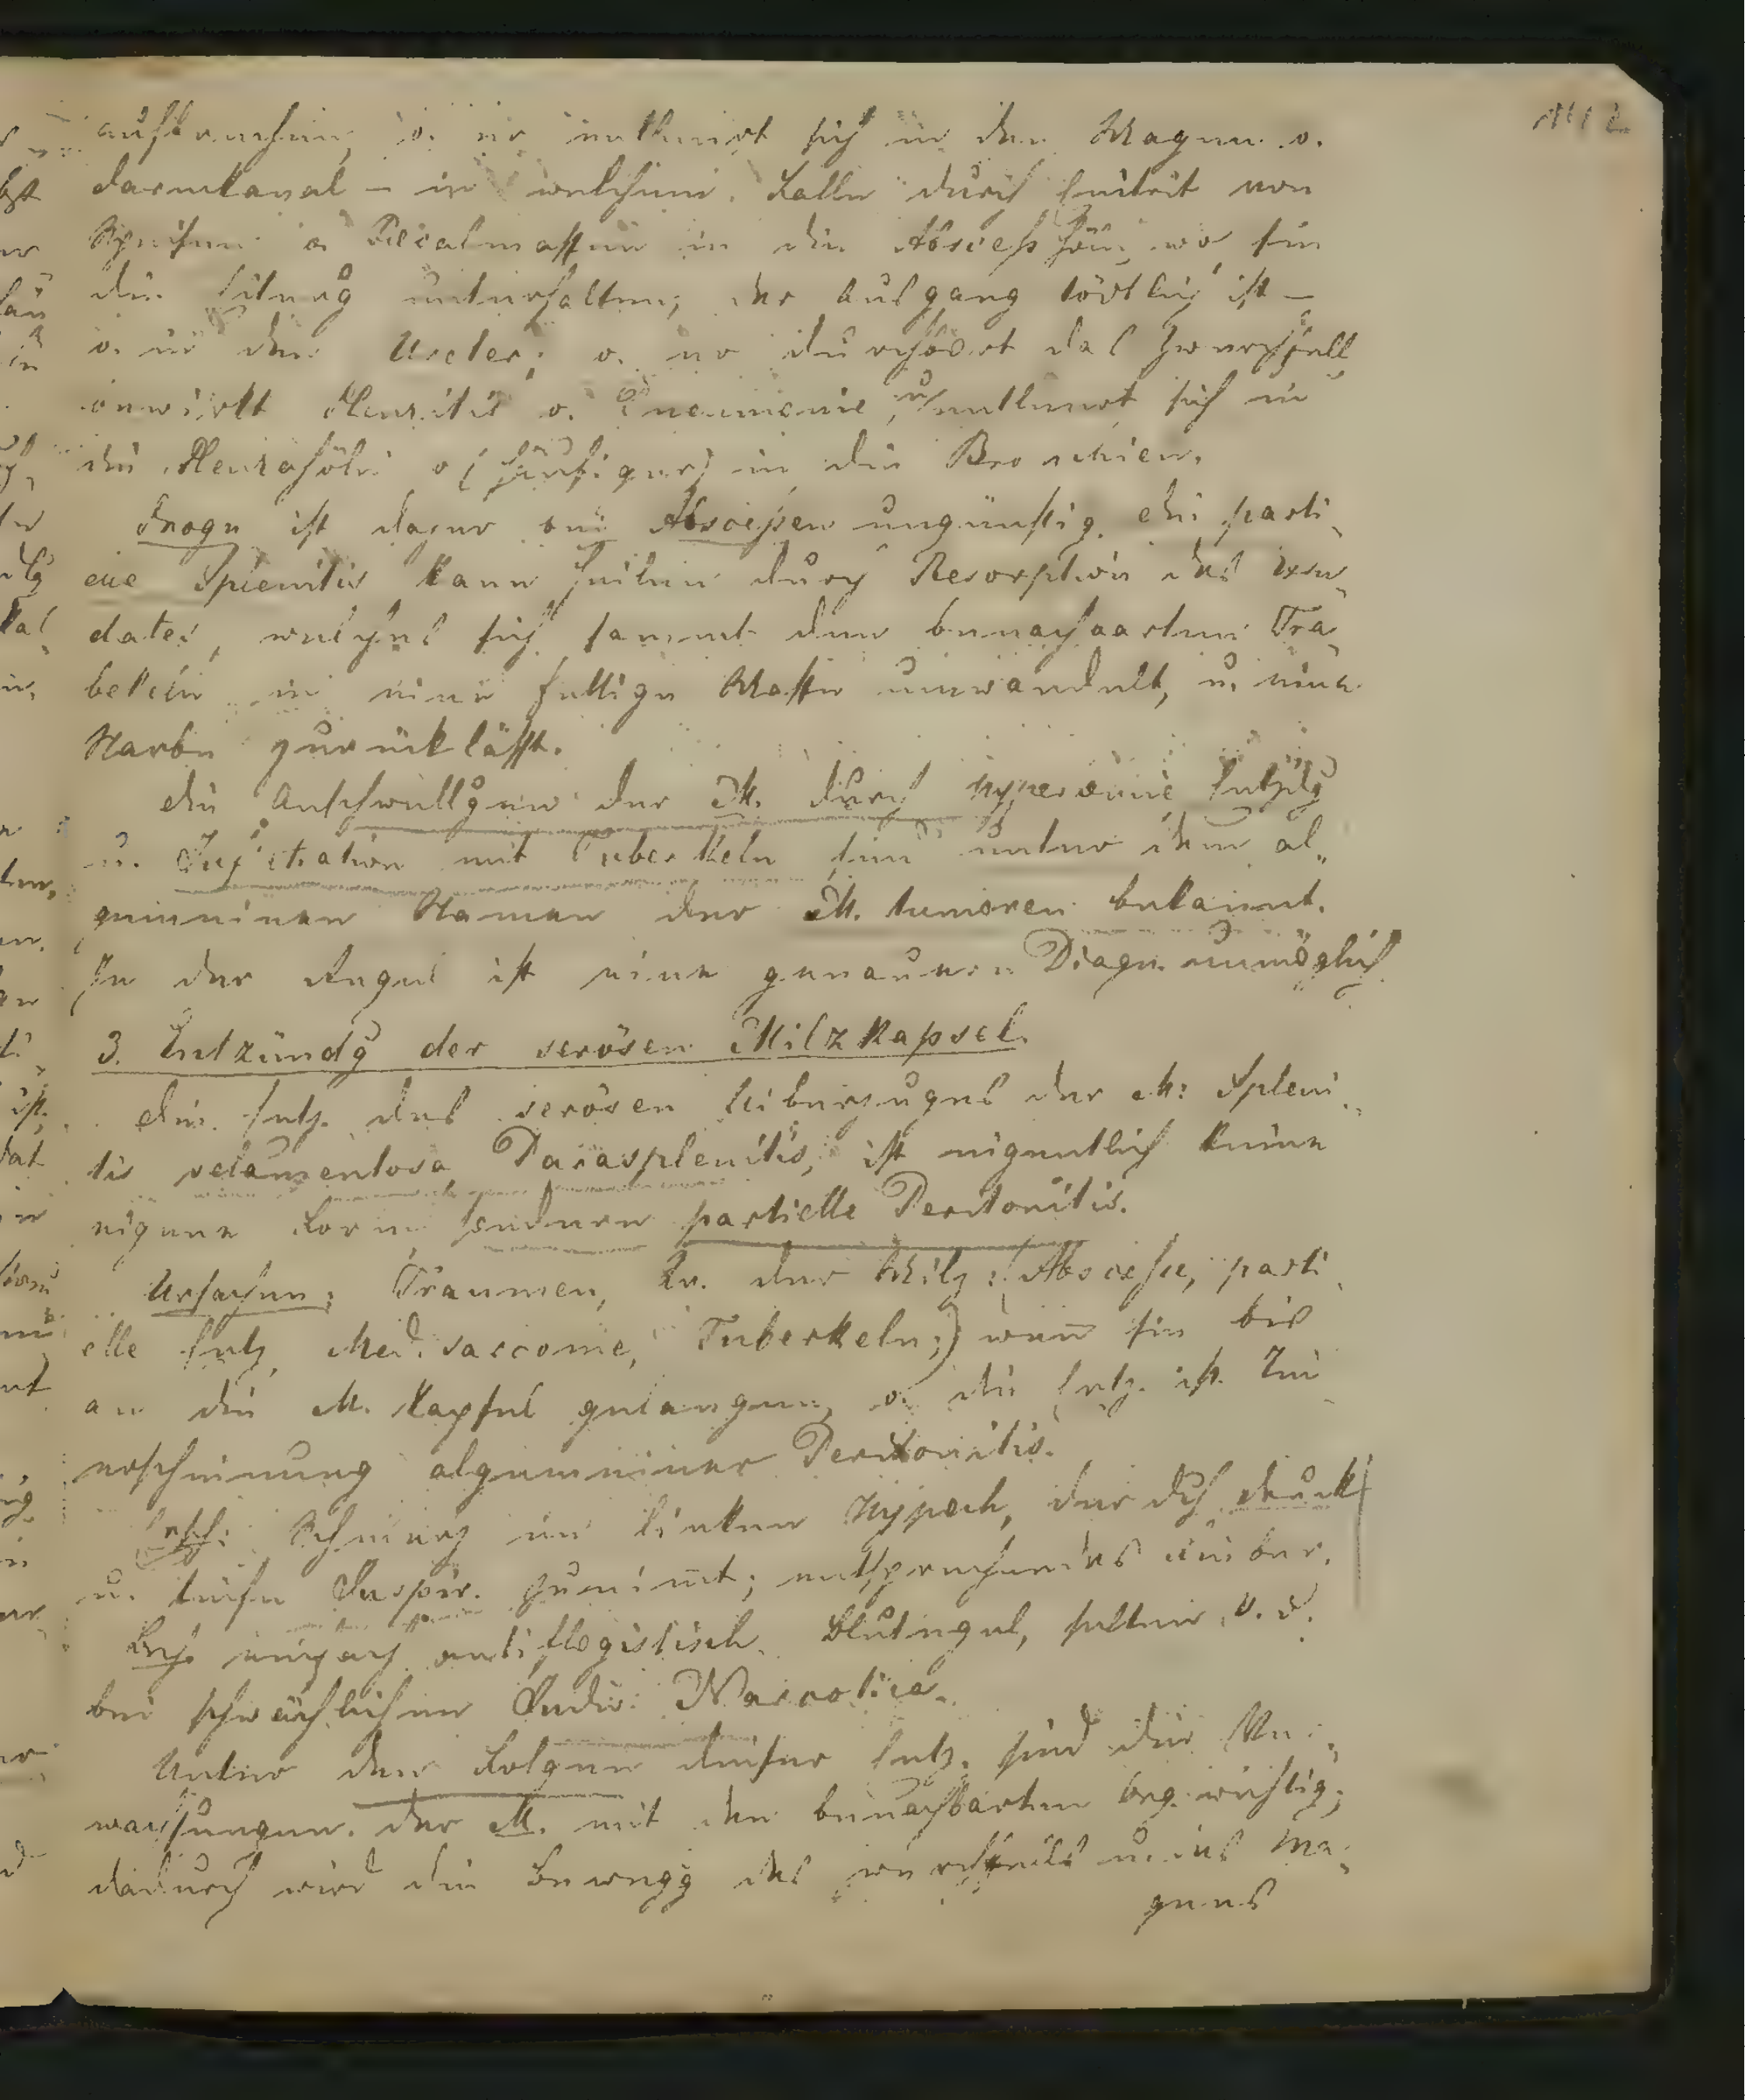 aufbrechen, o. er entleert sich in den Magen o.
Darmkanal – in welchem Falle durch Eintrit von
Speisen o. Fecalmassen in die Abscess Höle, wo sie
die Eiterung unterhalten, der Ausgang tödtlich ist –
o. in den Ureter; o. er durchbort das Zwerchfell
erwirkt Pleuritis o. Pneumonie, u. entleert sich in
die Pleurahöle o (häufiger) in die Bronchien.
Progn ist daher bei Abscessen ungünstig. Die parti-
elle Splenitis kann heilen durch Resorption des Exsu-
dates, welches sich sammt den benachbarten Tra-
bekeln in eine fettige Masse umwandelt, u. eine
Narbe zurückläßt.
Die Anschwellgen der M. durch Hyperämie Entzdg
u. Infiltration mit Tuberkeln sind unter dem al-
gemeinen Namen der M. tumoren bekannt.
In der Regel ist eine genauere Diagn. unmöglich
3. Entzündg der serösen Milzkapsel.
Die Entz. des serösen Ueberzuges der M: Spleni-
tis velamentosa, Parasplenitis, ist eigentlich keine
eigene Form sondern partielle Peritonitis.
Ursachen: Traumen, Kr. der Milz: (Abscesse, parti-
elle Entz. Med. sarcome, Tuberkeln;) wenn sie bis
an die M. Kapsel gelangen, o. die Entz. ist Teil-
erscheinung algemeiner Peritonitis.
Schmerz im linken Hypoch, der dch Druck
u. tiefe Inspir. zunimt; entsprechendes Fieber.
Beh. einfach antiflogistisch. Blutegel, selten V. S.
bei schwächlichen Indiv: Narcotica.
Unter den Folgen dieser Entz. sind die Ver-
wachsungen der M. mit den benachbarten Org. wichtig;
dadurch wird die Bewegg des Zwerchfells u. des Ma-
gens